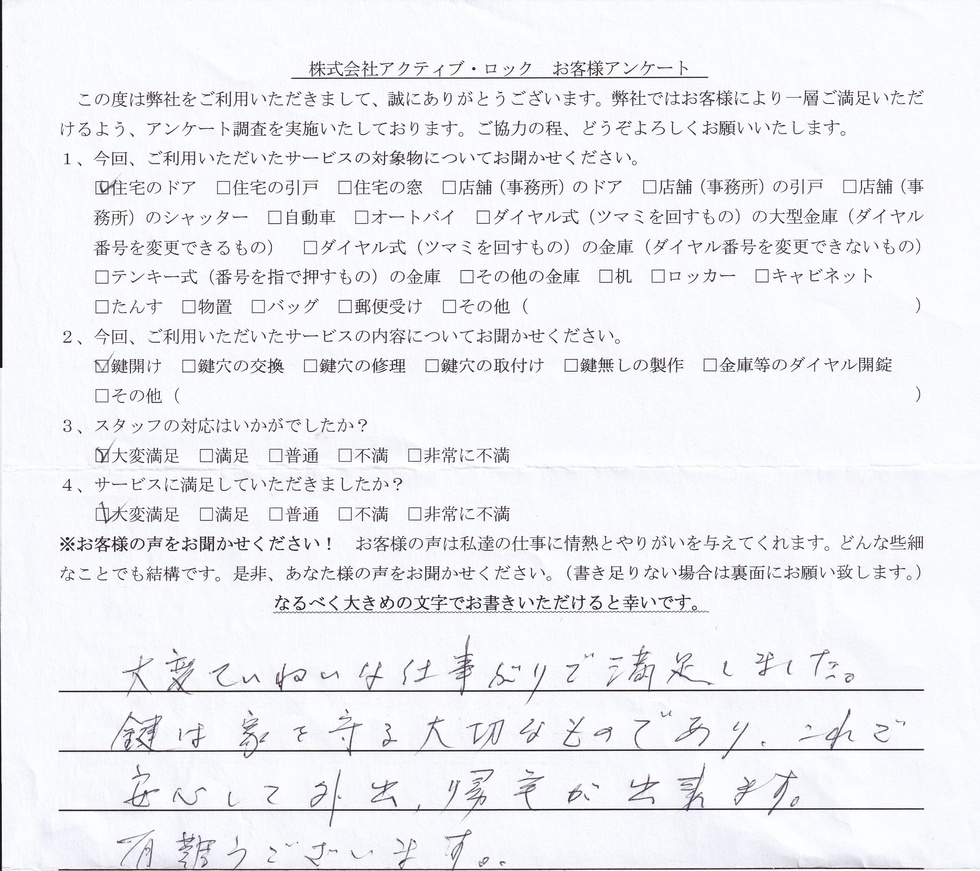 株式会社アクティブ・ロック　お客様アンケート
この度は弊社をご利用いただきまして、誠にありがとうございます。弊社ではお客様により一層ご満足いただ
けるよう、アンケート調査を実施いたしております。ご協力の程、どうぞよろしくお願いいたします。
1、今回、ご利用いただいたサービスの対象物についてお聞かせください。
☑住宅のドア　□住宅の引戸　□住宅の窓　□店舗（事務所）のドア　□店舗（事務所）の引戸　□店舗（事
務所）のシャッター　□自動車　□オートバイ　□ダイヤル式（ツマミを回すもの）の大型金庫（ダイヤル
番号を変更できるもの）　□ダイヤル式（ツマミを回すもの）の金庫（ダイヤル番号を変更できないもの）
□テンキー式（番号を指で押すもの）の金庫　□その他の金庫　□机　□ロッカー　□キャビネット
□たんす　□物置　□バッグ　□郵便受け　□その他（　　　）
2、今回、ご利用いただいたサービスの内容についてお聞かせください。
☑鍵開け　□鍵穴の交換　□鍵穴の修理　□鍵穴の取付け　□鍵無しの製作　□金庫等のダイヤル開錠
□その他（　　　）
3、スタッフの対応はいかがでしたか？
☑大変満足　□満足　□普通　□不満　□非常に不満
4、サービスに満足していただきましたか？
☑大変満足　□満足　□普通　□不満　□非常に不満
※お客様の声をお聞かせください！　お客様の声は私達の仕事に情熱とやりがいを与えてくれます。どんな些細
なことでも結構です。是非、あなた様の声をお聞かせください。（書き足りない場合は裏面にお願い致します。）
なるべく大きめの文字でお書きいただけると幸いです。
大変ていねいな仕事ぶりで満足しました。
鍵は家を守る大切なものであり、これで
安心して外出、帰宅が出来ます。
有難うございます。